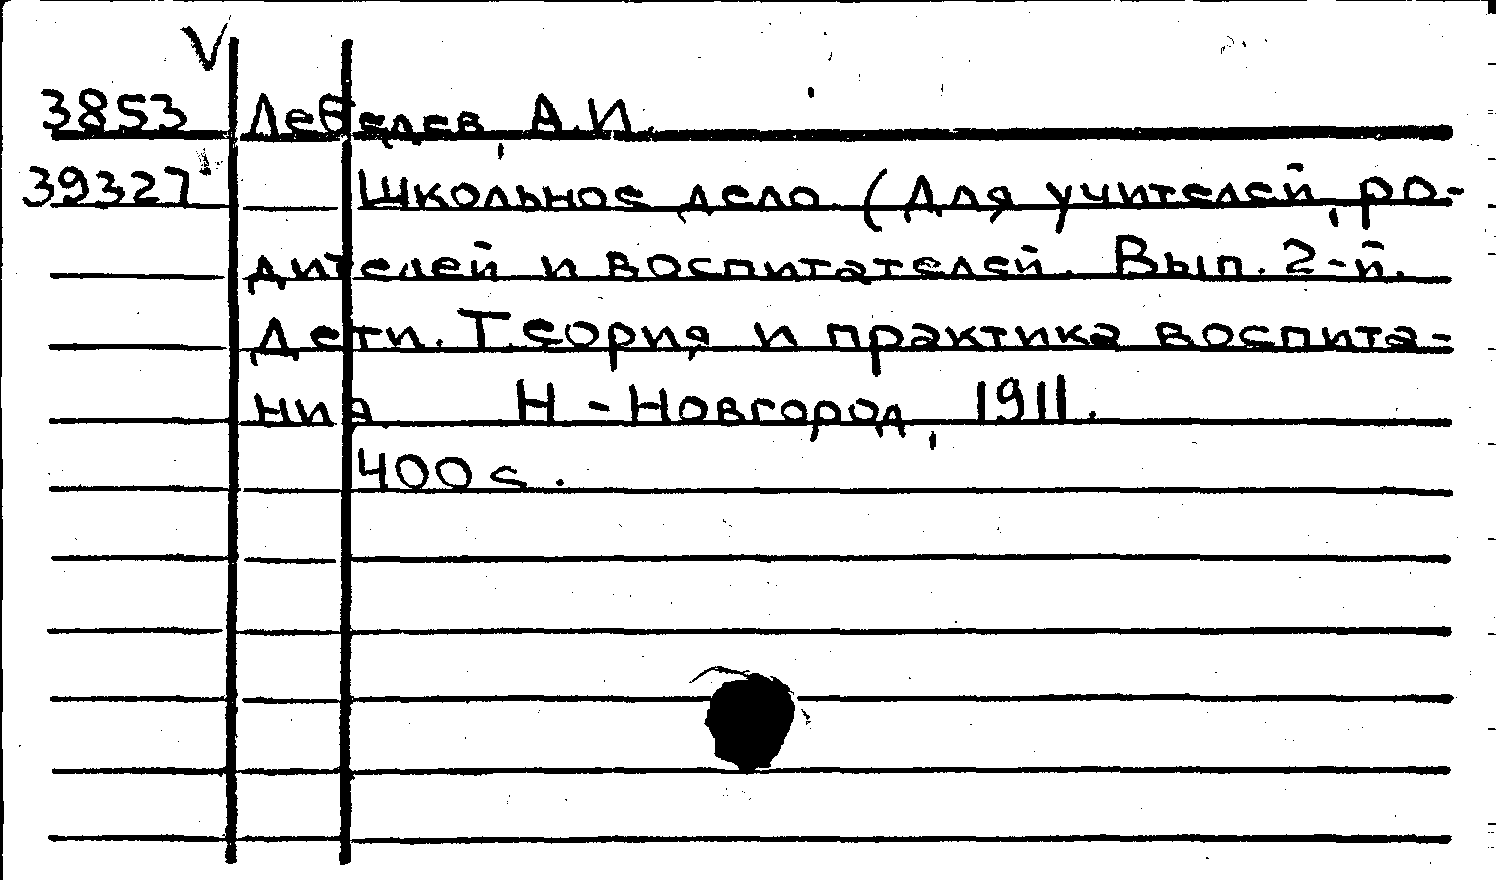 V
3853 Лебедев, А.И.
39327 Школьное дело (Для учителей, ро-
дителей и воспитателей. Вып. 2-й.
Дети. Теория и практика воспита-
ния Н-Новгород, 1911.
400 с.